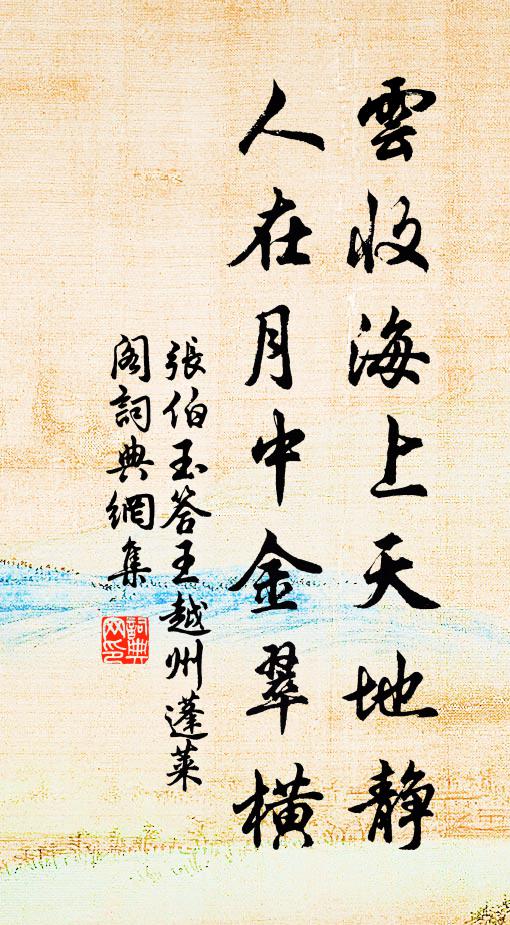 雲收海上天地静
人在月中金翠橫
張伯玉答王越州蓬萊
閣詞典網集
詞典
网印